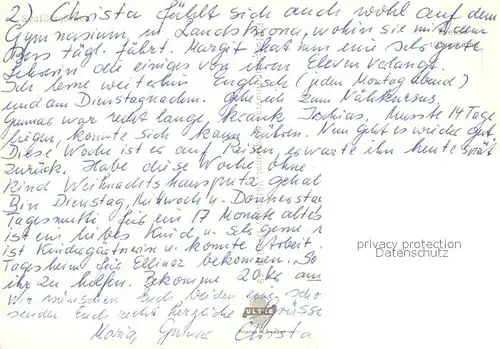 2) Christa fühlt sich auch wohl auf dem
Gymnasium in Landskrona, wohin sie mit dem
Bus tägl. fährt. Margit hat nun eine sehr gute
die einiges von ihren Eleven verlangt.
Ich lerne weiterhin Englisch (jeden Montag abend)
und am Dienstagnachm. gehe ich zum Nähkursus.
Gunnar war recht lange krank Ischias. Musste 14 Tage
liegen, konnte sich kaum rühren. Nun geht es wieder gut.
Diese Woche ist er auf Reisen, erwarte ihn heute spät
zurück. Habe diese Woche ohne
Kind Weihnachtshausputz gehal
Bin Dienstag, Mittwoch u. Donnerstag
Tagesmutti für ein 17 Monate altes
ist ein liebes Kind u. sehr gerne
ist Kindergärtnerin u. konnte Arbeit
Tagesheim für Ellinor bekommen. So
ihr zu helfen. Bekomme 20 Kr am
Wir wünschen Euch beiden
senden Euch recht herzliche Grüsse
Maria Gunnar Christa
privacy protection
Datenschutz
ULTRA